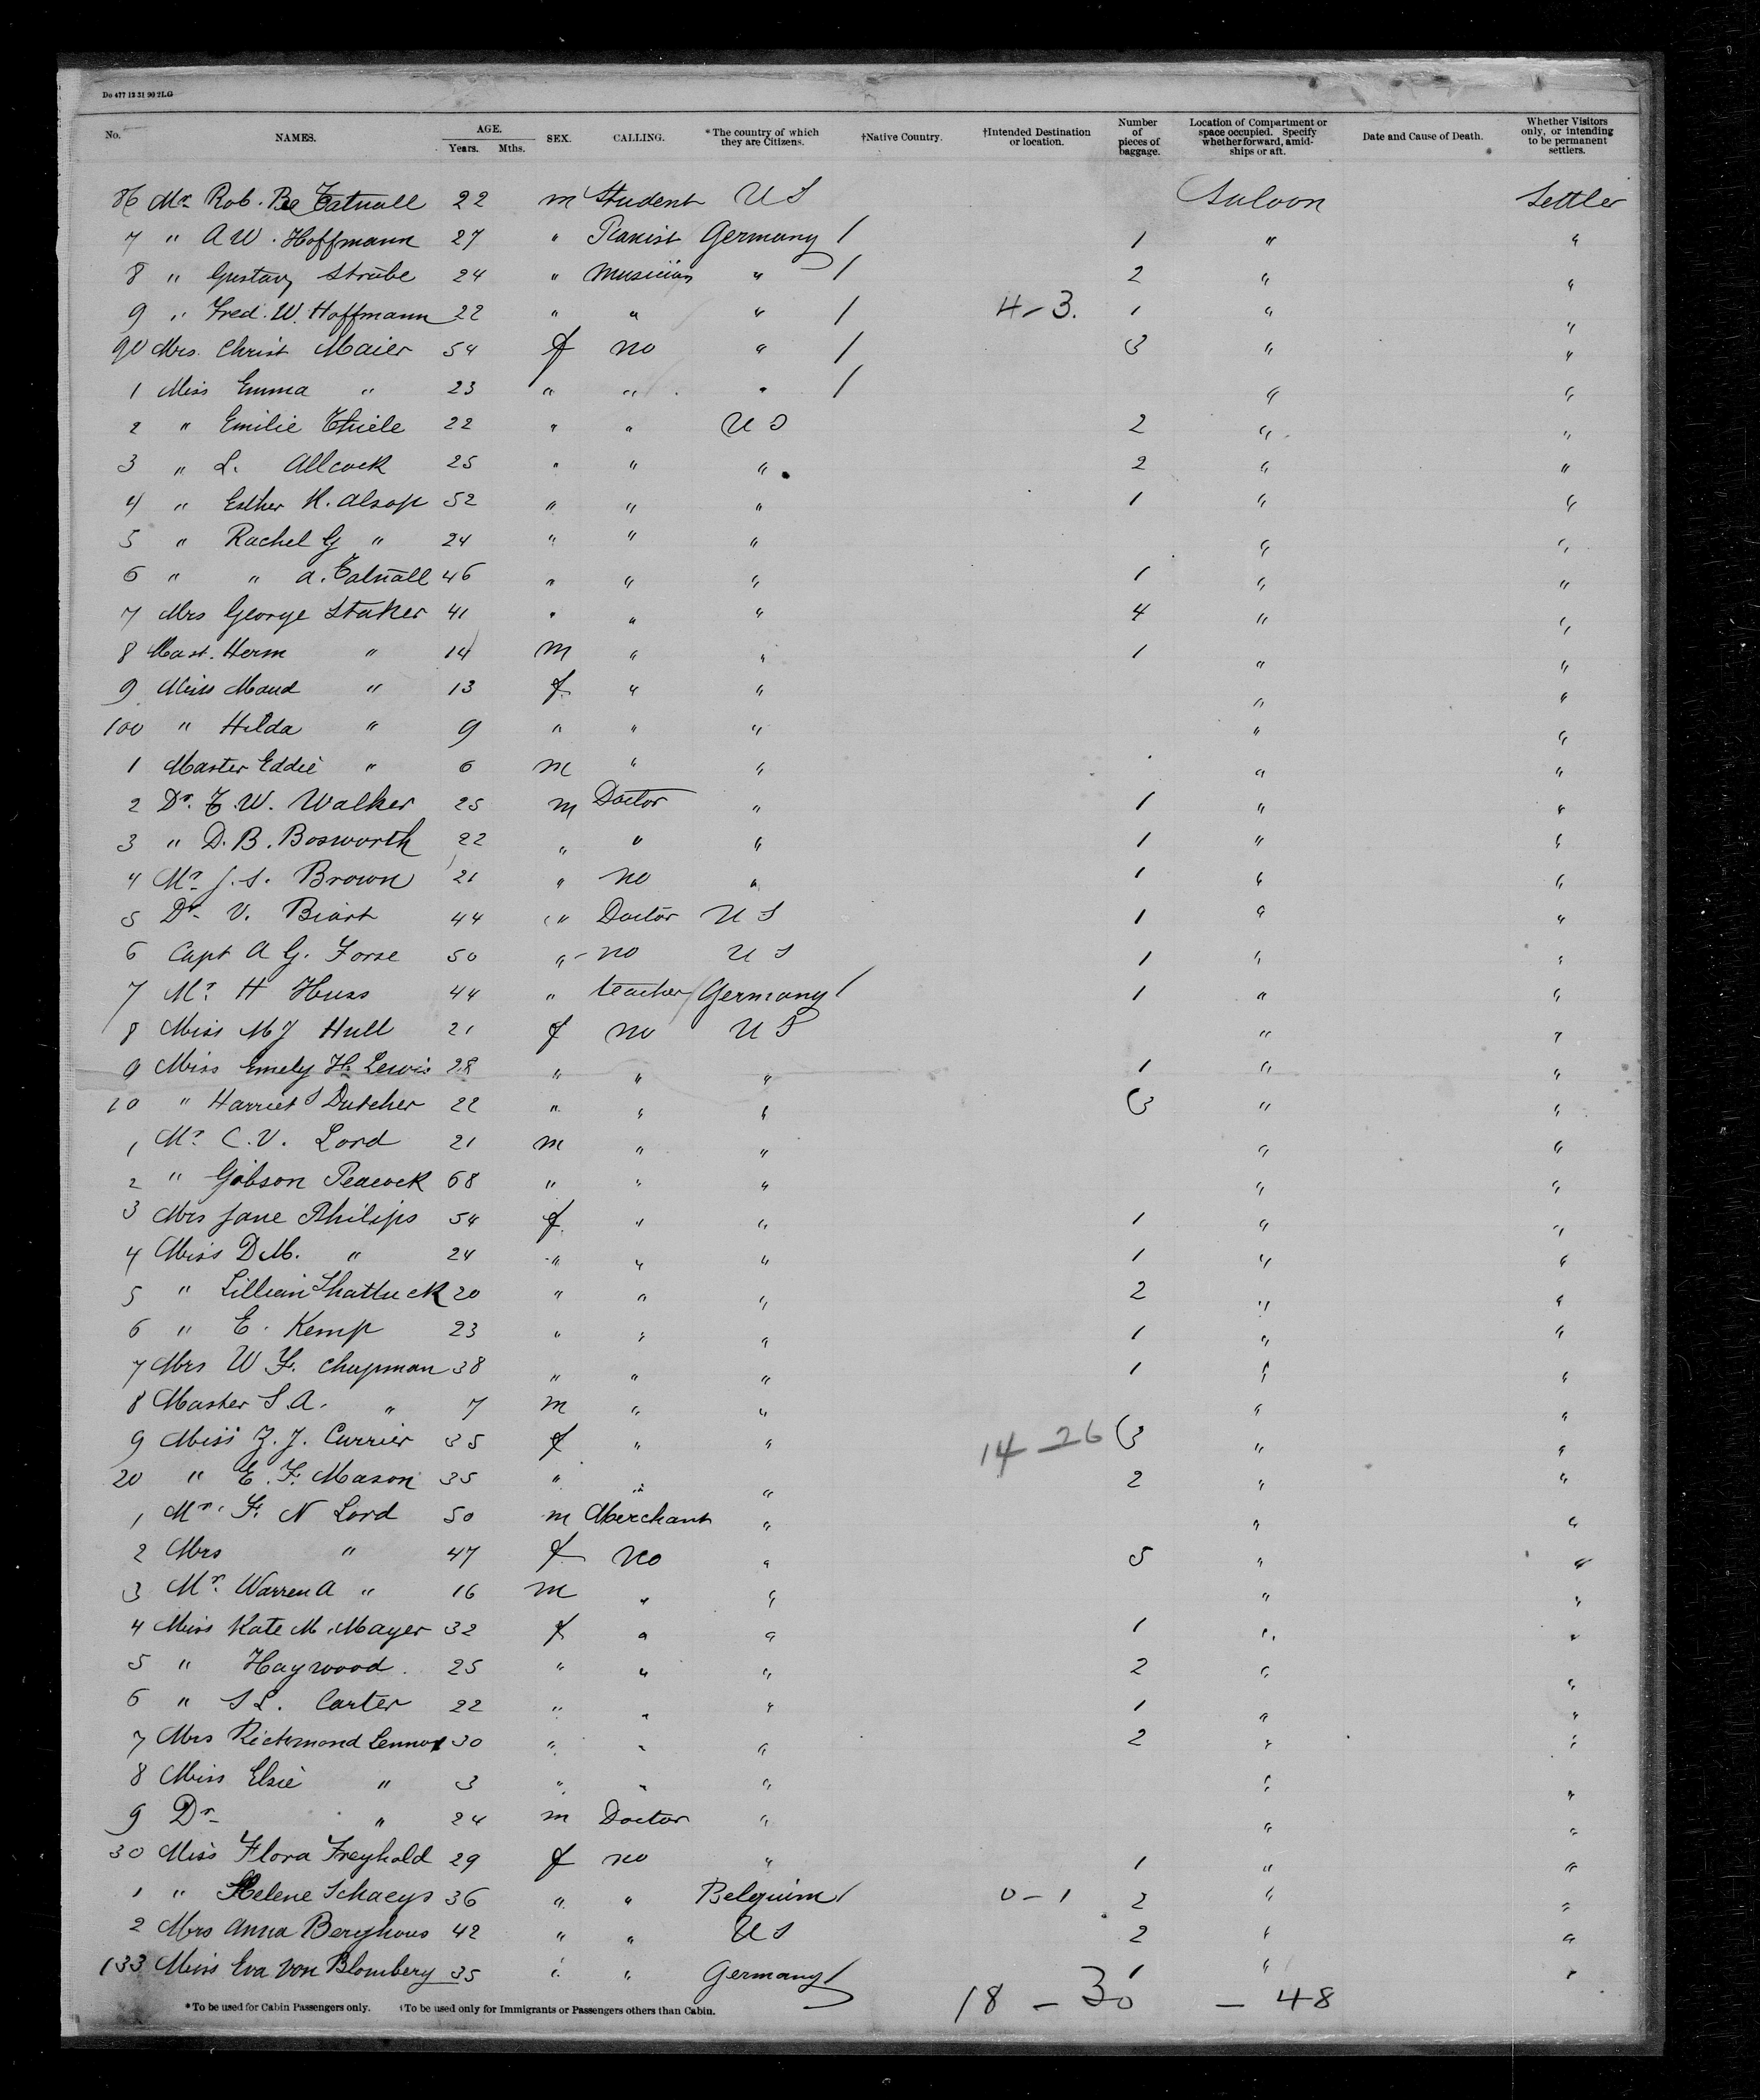 Do 477 12 31 90 2LG
No. NAMES. AGE. Years. Mths. SEX. CALLING. *The country of which they are Citizens. †Native Country. †Intended Destination or location. Number of pieces of baggage. Location of Compartment or space occupied. Specify whether forward, amidships or aft. Date and Cause of Death. Whether Visitors only, or intending to be permanent settlers.
86 Mr Rob. Tatnall 22 m Student US Saloon Settler
7 " A W. Hoffmann 27 " Pianist Germany / 1 " "
8 " Gustav Strube 24 " Musician " / 2 " "
9 " Fred. W. Hoffmann 22 " " " / 4-3. 1 " "
90 Mrs. Christ Maier 54 f no " / 3 " "
1 Miss Emma " 23 " " " / " "
2 " Emilie Thiele 22 " " US 2 " "
3 " L. Allcock 25 " " " 2 " "
4 " Esther H. Alsop 52 " " " 1 " "
5 " Rachel G " 24 " " " " "
6 " " A. Tatnall 46 " " " 1 " "
7 Mrs George Staker 41 " " " 4 " "
8 Mast. Herm " 14 m " " 1 " "
9 Miss Maud " 13 f " " " "
100 " Hilda " 9 " " " " "
1 Master Eddie " 6 m " " " "
2 Dr. T. W. Walker 25 m Doctor " 1 " "
3 " D. B. Bosworth 22 " " " 1 " "
4 Mr J. S. Brown 21 " no " 1 " "
5 Dr V. Biart 44 " Doctor US 1 " "
6 Capt A G. Forse 50 " no US 1 " "
7 Mr. H Huss 44 " teacher Germany / 1 " "
8 Miss M J Hull 21 f no US " "
9 Miss Emely H. Lewis 28 " " " 1 " "
10 " Harriet S Dutcher 22 " " " 3 " "
1 Mr. C. V. Lord 21 m " " " "
2 " Gibson Peacock 68 " " " " "
3 Mrs Jane Philips 54 f " " 1 " "
4 Miss D M. " 24 " " " 1 " "
5 " Lillian Shattuck 20 " " " 2 " "
6 " E. Kemp 23 " " " 1 " "
7 Mrs W F. Chapman 38 " " " 1 " "
8 Master S. A. " 7 m " " " "
9 Miss Z. J. Currier 35 f " " 14-26 3 " "
20 " E. F. Mason 35 " " " 2 " "
1 Mr. F. N Lord 50 m Merchant " " "
2 Mrs " 47 f no " 5 " "
3 Mr. Warren A " 16 m " " " "
4 Miss Kate M. Mayer 32 f " " 1 " "
5 " Haywood 25 " " " 2 " "
6 " S L. Carter 22 " " " 1 " "
7 Mrs Richmond Lennox 30 " " " 2 " "
8 Miss Elsie " 3 " " " " "
9 Dr " 24 m Doctor " " "
30 Miss Flora Freyhold 29 f no " 1 " "
1 " Helene Schaeys 36 " " Belguim / 0-1 2 " "
2 Mrs Anna Berghous 42 " " US 2 " "
133 Miss Eva von Blomberg 35 " " Germany / 1 " "
*To be used for Cabin Passengers only. †To be used only for Immigrants or Passengers others than Cabin.
18 - 30 - 48